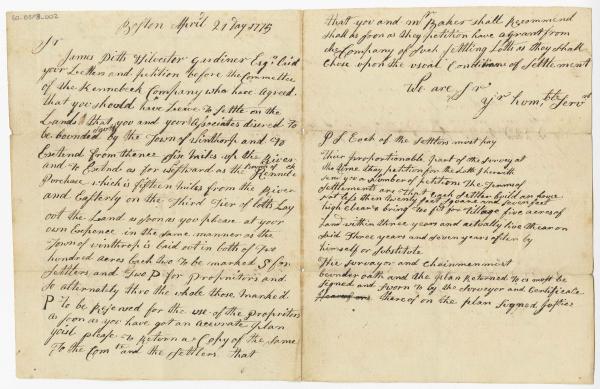 60.0518.002
Boston Aprl 21 day 1775
Sr
James Pitts Silvester Gardiner Esqrs laid
your Letters and petition before the Committee
of the Kennebeck Company who have Agreed
that you should have Leave to Settle on the
Lands that you and your Associates disered to
be bounded by the Town of Winthorp and to
Extend from thence Six Miles up the River
and to Extend as far westward as the Kennebe
Purchase which is fifteen miles from the River
and Easterly on the Third Tier of lotts Lay
out the Land as soon as you please at your
own Expence in the same manner as the
Town of winthrop is Laid out in botts of Two
hundred acres Each Two to be marked S for
Settlers and Two P for Propriters and
so alternatly thro the whole those marked
P to be Reserved for the use of the Propriters
as soon as you have got an accurate plan
youl please to Return a Copy of the same
To the Comtte and the Settlers that
that you and mr Baker shall Recommend
shall as soon as they petition have a grant from
the Company of Such Settling Lotts as they shall
Chose upon the usual Conditions of Settlement
We are Sr
yr hum,ble Servnt
PS Each of the Settlers must pay
Their proportionable part of the Survey at
the time they petition for the Lotts I herewith
send you a Number of petitions The Terms of
Settlements are that Each settler build an house
not less then twenty feet Square and Seven feet
high clear &amp; bring to fit for Tillage five acres of
Land within three years and actually live there on
said Three years and seven years after by
himself or Substitute
The Surveyor and Chainmen must
be under oath and the plan Returned to us must be
Signed and Sworn to by the Surveyor and Certificate
thereof on the plan Signed Justice